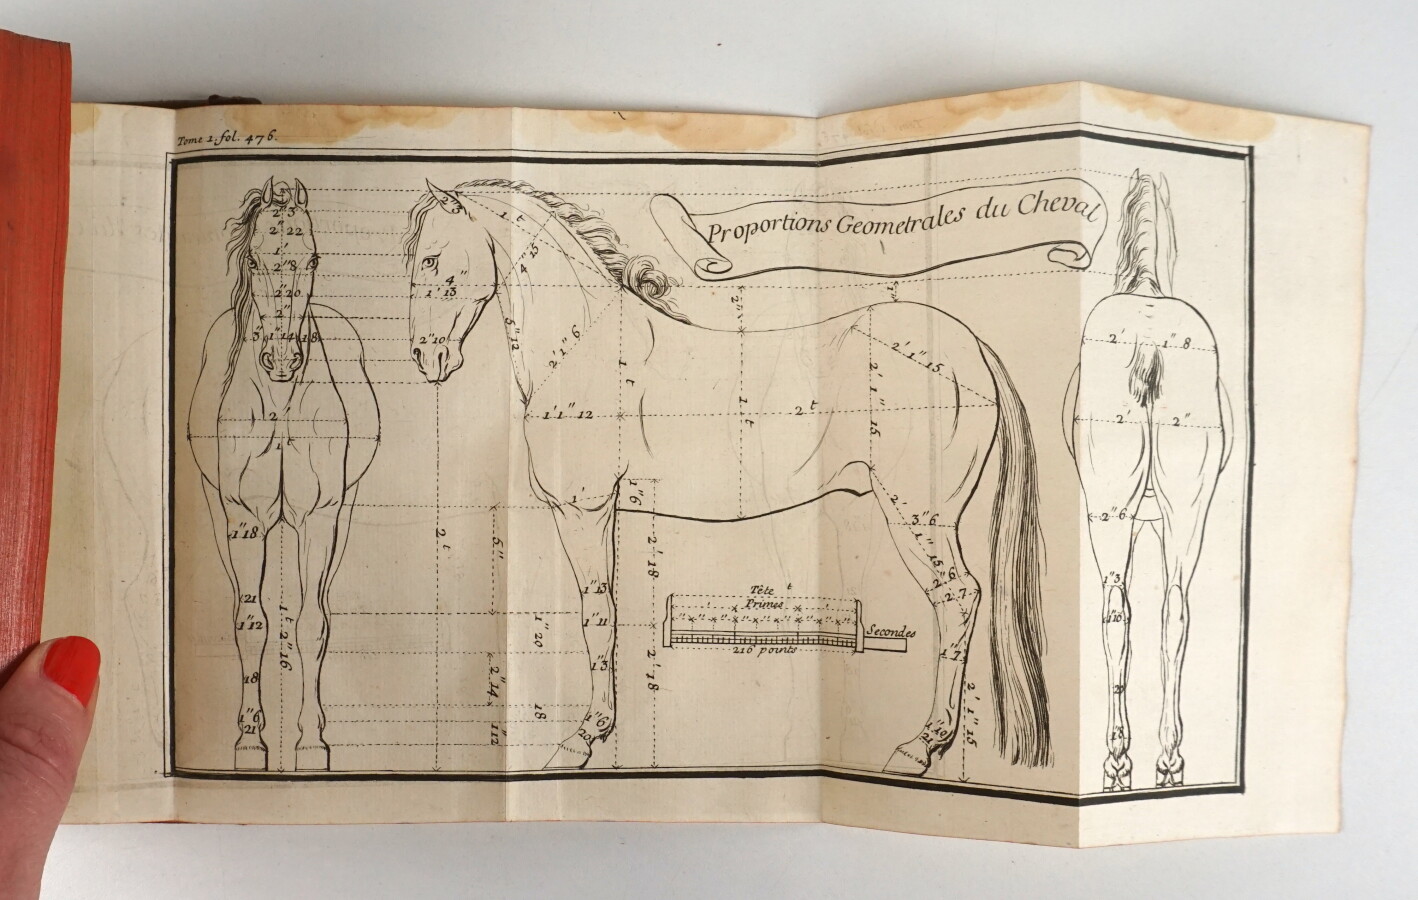 Tome 1. fol. 476.
Proportions Geometrales du Cheval
2" 3
2" 22
1'
2" 8
2" 20
2"
3" 1" 14 18
2'
1 t
1" 18
21
1" 12
18
1" 6
21
1 t 2" 16
2" 3
1 t
4" 15
4"
1' 13
2" 10
5" 12
2' 1" 6
1' 1" 12
1 t
1'
1" 6
2 t
5"
2" 14
1" 20
18
2' 18
2" 18
1" 13
1" 11
1" 3
1" 6
20
2"
1 t
2 t
1"
2' 1" 15
2' 1" 15
2'
3" 6
1" 15
2" 6
2. 7
1" 7
2' 1" 15
1" 10
21
Tête t
Primes
Secondes
216 points
2' 1" 8
2' 2"
2" 6
1" 3
1" 16
20
18